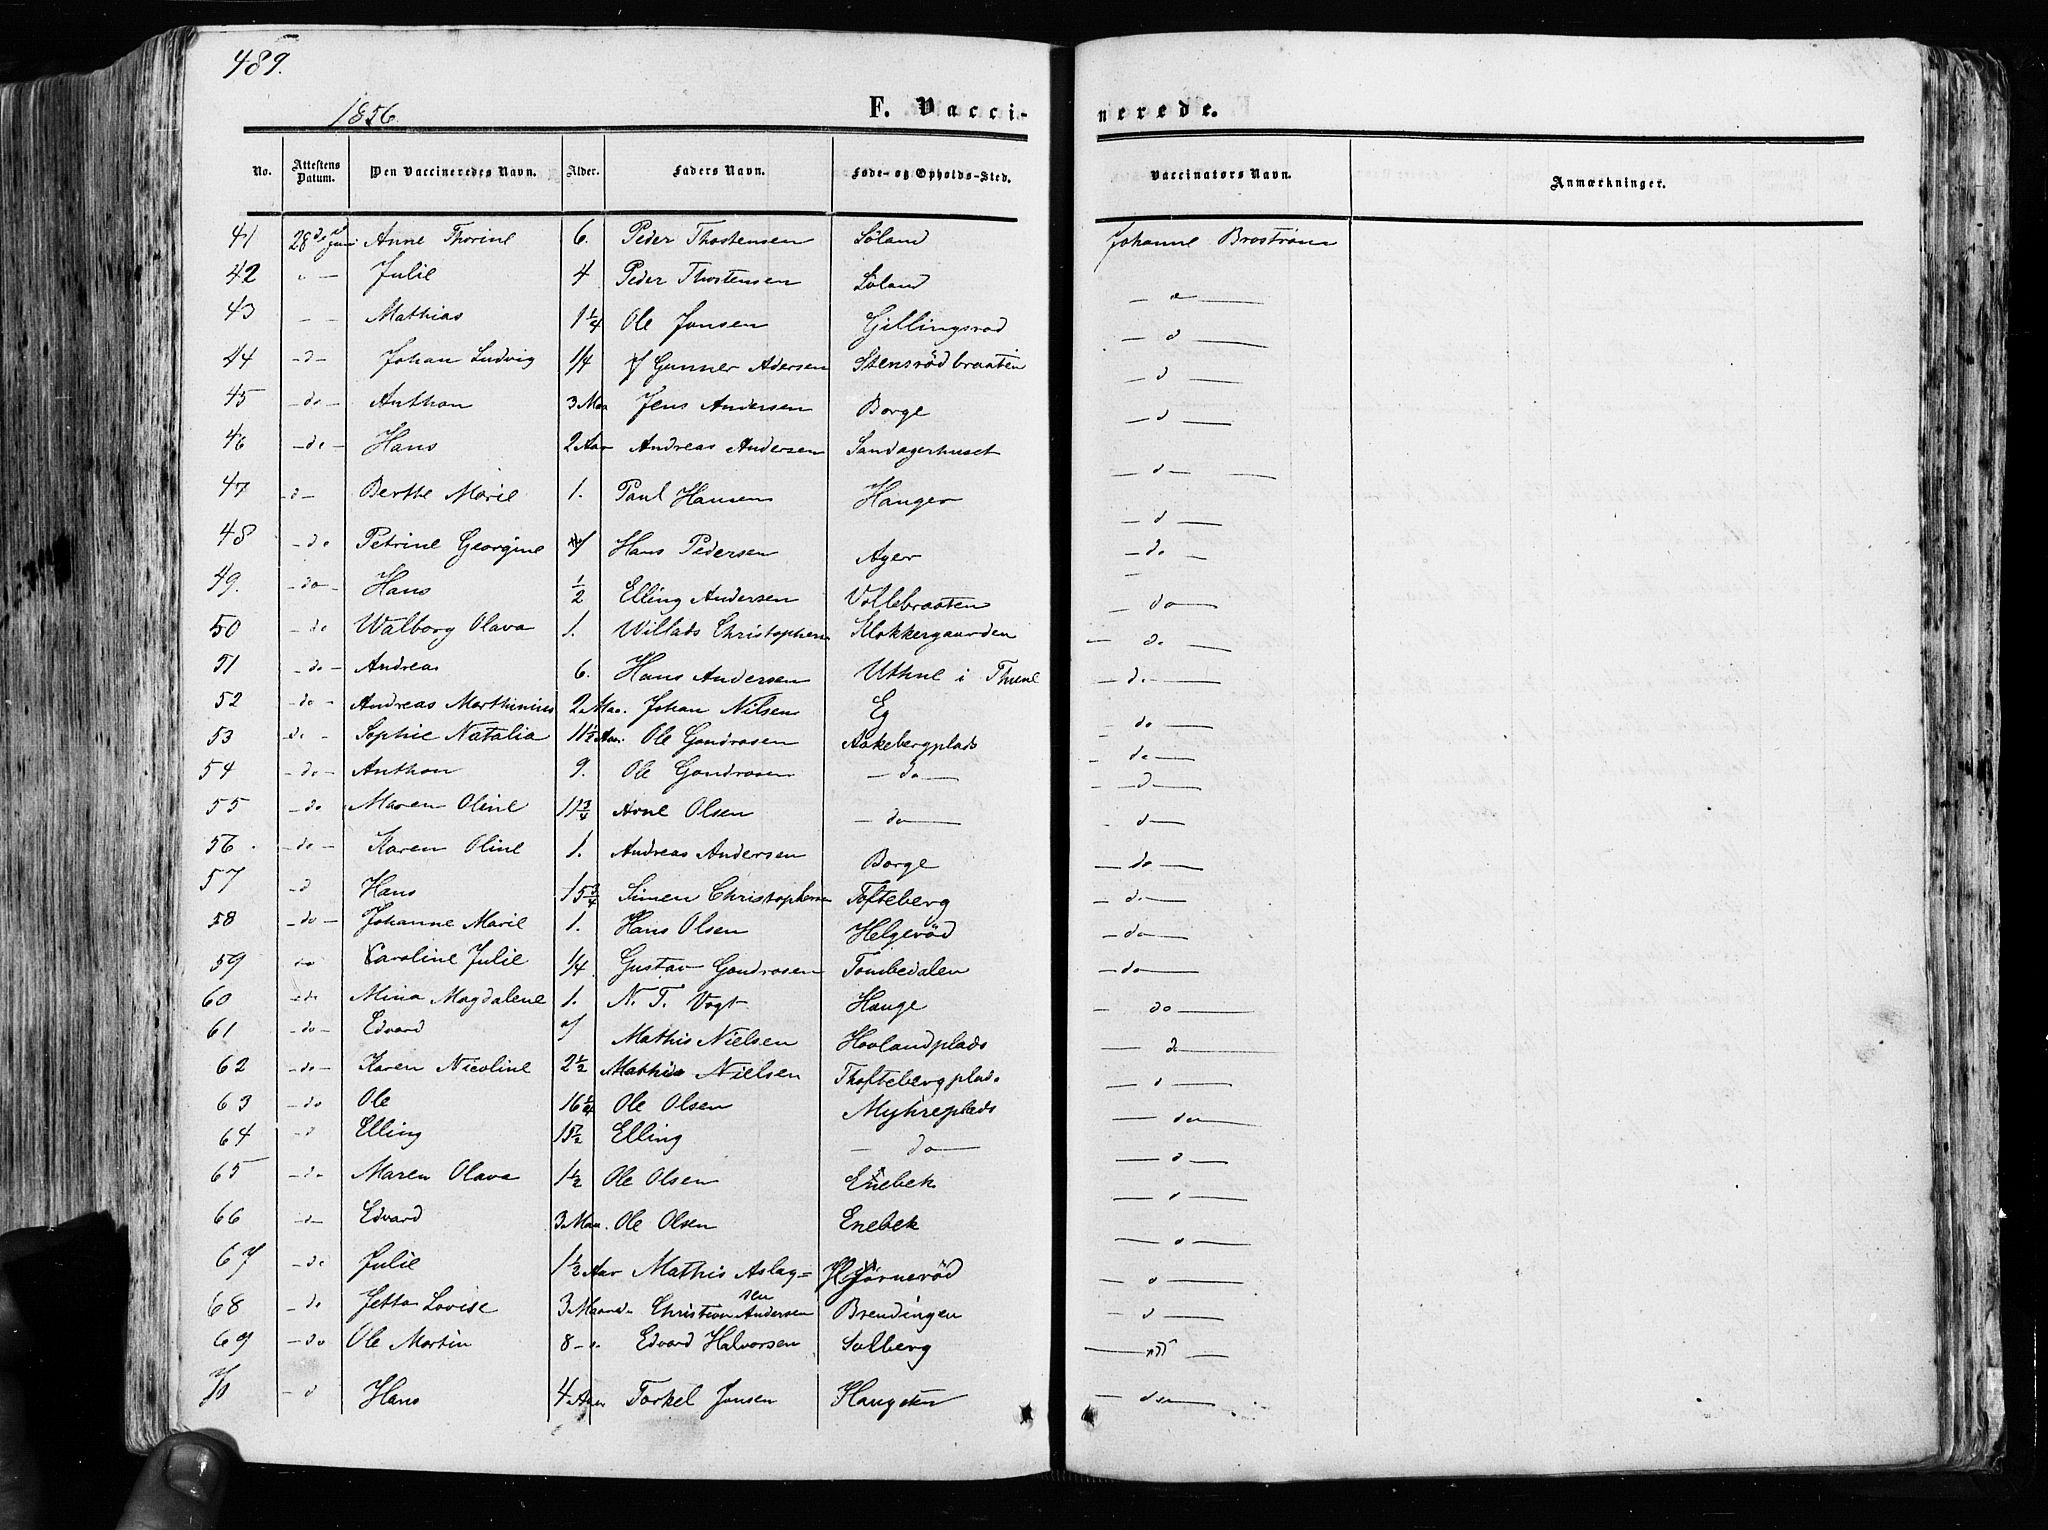 489.
1856.
F. Vaccinerede.
No. Attestens Datum. Den Vaccineredes Navn. Alder. Faders Navn. Føde- og Opholds-Sted. Vaccinators Navn. Anmærkninger.
41 28de Juni Anne Thorine 6. Peder Thostensen Søland Johanne Brostrøm
42 - Julie 4 Peder Thostensen Søland - d -
43 - Mathias 1 1/4 Ole Jensen Gillingsrød - d -
44 - d - Johan Ludvig 1/4 Gunner Adersen Stensrødbraaten - d -
45 - do - Anthon 3 Maa Jens Andersen Borge - d -
46 - do - Hans 2 Aar Andreas Andersen Sandagerhuset - d -
47 - d - Berthe Marie 1. Paul Hansen Hauger - d -
48 - do Petrine Georgine Hans Pedersen Ager - do -
49. - do - Hans 1/2 Elling Andersen Vollebraaten - do -
50 - do Walborg Olava 1. Willads Christophersen Klokkergaarden - do
51 - do - Andreas 6. Hans Andersen Uthne i Thune - d -
52 - do - Andreas Marthinius 2 Maa. Johan Nilsen Eg - do -
53 do - Sophie Natalia 11 1/2 Aar. Ole Gondrosen Aakebergplads - do -
54 - do - Anthon 9. Ole Gondrosen - do - - d -
55 - do Maren Oline 11 3/4 Arne Olsen - do - - d -
56. - do - Karen Oline 1. Andreas Andersen Borge - do -
57 - d Hans 15 3/4 Simen Christophersen Tofteberg - d -
58 - do - Johanne Marie 1. Hans Olsen Helgerød - do -
59 do Caroline Julie 1/4 Gustav Gondrosen Tombedalen - do -
60 - do Mina Magdalene 1. N. T. Vogt Hauge - do -
61 - do - Edvard Mathis Nielsen Hovlandplads - d -
62 - do - Karen Nicoline 2 1/2 Mathis Nielsen Thoftebergplads - d -
63 - do Ole 16 Ole Olsen Myhreplads - do -
64 - d Elling 15 1/2 Elling - do - - d -
65 - do Maren Olava 1 1/2 Ole Olsen Enebek - d -
66 - d - Edvard 3 Maa. Ole Olsen Enebek - d -
67 - do Julie 1 1/2 Aar Mathis Aslag= Hjørnerød - d -
sen
68 - do Jetta Lovise 3 Maaned. Christian Andersen Brendingen - d -
69 - do Ole Martin 8 - Edvard Halvorsen Solberg
70 - d Hans 4 Aar Torkel Jensen Haugsten - do -